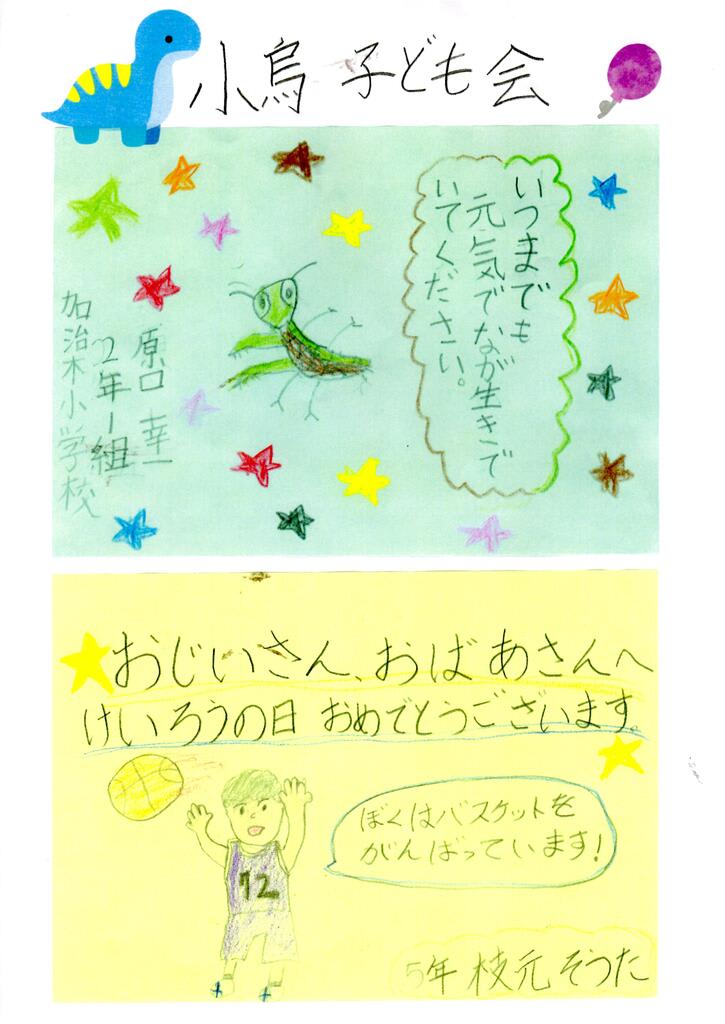 小烏 子ども会
いつまでも
元気でなが生きで
いてください。
原口 幸一
2年1組
加治木小学校
おじいさん、おばあさんへ
けいろうの日 おめでとうございます。
ぼくはバスケットを
がんばっています!
12
5年 枝元 そうた